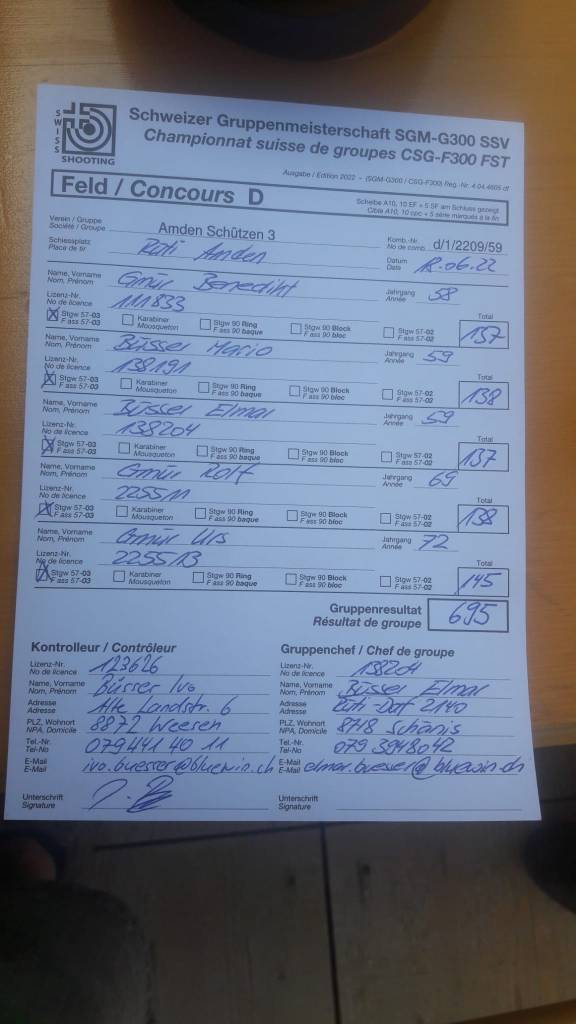 SWISS
SHOOTING
Schweizer Gruppenmeisterschaft SGM-G300 SSV
Championnat suisse de groupes CSG-F300 FST
Ausgabe / Edition 2022 - (SGM-G300 / CSG-F300) Reg.-Nr. 4.04.4605 df
Feld / Concours D
Scheibe A10, 10 EF + 5 SF am Schluss gezeigt
Cible A10, 10 cpc + 5 série marqués à la fin
Verein / Gruppe
Société / Groupe
Amden Schützen 3
Komb.-Nr.
No de comb.
d/1/2209/59
Schiessplatz
Place de tir
Rüti Amden
Datum
Date
18.06.22
Name, Vorname
Nom, Prénom
Gmür Benedikt
Jahrgang
Année
58
Lizenz-Nr.
No de licence
111833
Total
Stgw 57-03
F ass 57-03
Karabiner
Mousqueton
Stgw 90 Ring
F ass 90 baque
Stgw 90 Block
F ass 90 bloc
Stgw 57-02
F ass 57-02
137
Name, Vorname
Nom, Prénom
Büsser Mario
Jahrgang
Année
59
Lizenz-Nr.
No de licence
138191
Total
Stgw 57-03
F ass 57-03
Karabiner
Mousqueton
Stgw 90 Ring
F ass 90 baque
Stgw 90 Block
F ass 90 bloc
Stgw 57-02
F ass 57-02
138
Name, Vorname
Nom, Prénom
Büsser Elmar
Jahrgang
Année
59
Lizenz-Nr.
No de licence
138204
Total
Stgw 57-03
F ass 57-03
Karabiner
Mousqueton
Stgw 90 Ring
F ass 90 baque
Stgw 90 Block
F ass 90 bloc
Stgw 57-02
F ass 57-02
137
Name, Vorname
Nom, Prénom
Gmür Rolf
Jahrgang
Année
69
Lizenz-Nr.
No de licence
225511
Total
Stgw 57-03
F ass 57-03
Karabiner
Mousqueton
Stgw 90 Ring
F ass 90 baque
Stgw 90 Block
F ass 90 bloc
Stgw 57-02
F ass 57-02
138
Name, Vorname
Nom, Prénom
Gmür Urs
Jahrgang
Année
72
Lizenz-Nr.
No de licence
225513
Total
Stgw 57-03
F ass 57-03
Karabiner
Mousqueton
Stgw 90 Ring
F ass 90 baque
Stgw 90 Block
F ass 90 bloc
Stgw 57-02
F ass 57-02
145
Gruppenresultat
Résultat de groupe
695
Kontrolleur / Contrôleur
Lizenz-Nr.
No de licence
123626
Name, Vorname
Nom, Prénom
Büsser Ivo
Adresse
Adresse
Alte Landstr. 6
PLZ, Wohnort
NPA, Domicile
8872 Weesen
Tel.-Nr.
Tel-No
079 441 40 11
E-Mail
E-Mail
ivo.buesser@bluewin.ch
Unterschrift
Signature
Gruppenchef / Chef de groupe
Lizenz-Nr.
No de licence
138204
Name, Vorname
Nom, Prénom
Büsser Elmar
Adresse
Adresse
Rüti-Dorf 2140
PLZ, Wohnort
NPA, Domicile
8718 Schänis
Tel.-Nr.
Tel-No
079 3948042
E-Mail
E-Mail
elmar.buesser@bluewin.ch
Unterschrift
Signature